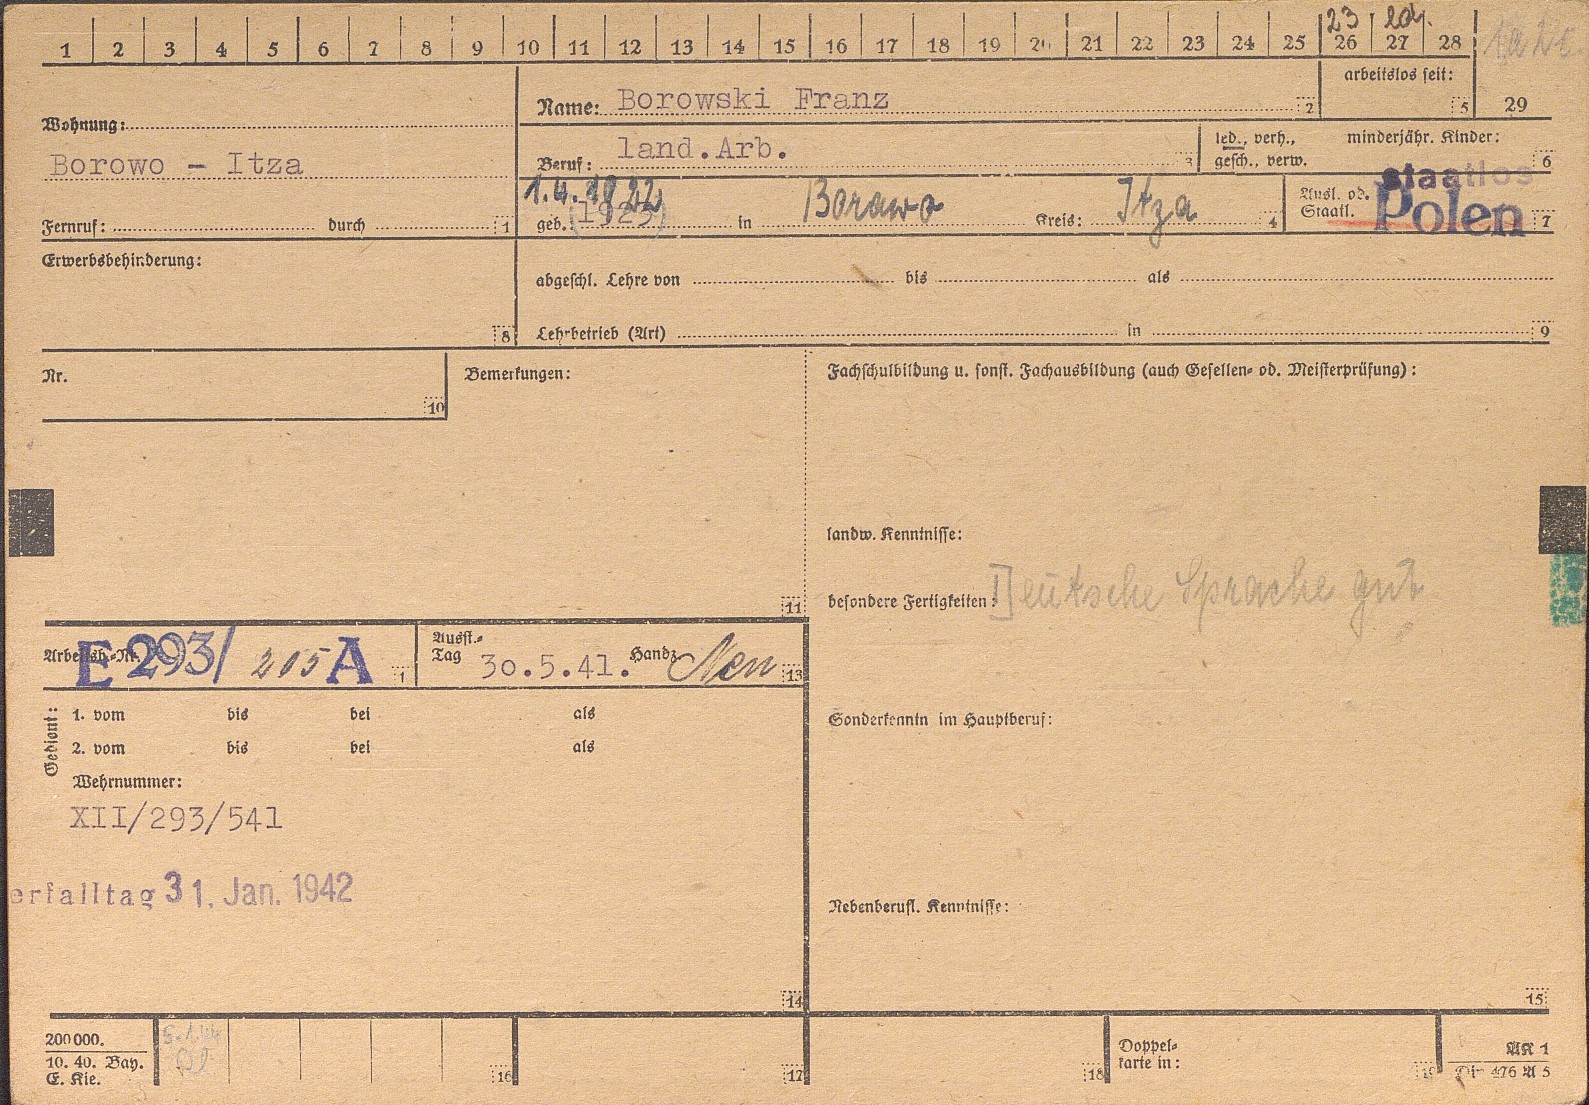 23 | La.
1 2 3 4 5 6 7 8 9 10 11 12 13 14 15 16 17 18 19 20 21 22 23 24 25 26 27 28
arbeitslos seit:
Name: Borowski Franz 2 5 29
Wohnung:
Borowo - Itza
Beruf: land.Arb. 3
led., verh., minderjähr. Kinder:
gesch., verw. 6
staatlos
1.4.1922
geb.: (1923) in Borawo Kreis: Itza 4
Ausl. od.
Staatl. Polen 7
Fernruf: durch 1
Erwerbsbehinderung:
8
abgeschl. Lehre von bis als
Lehrbetrieb (Art) in 9
Nr.
10
Bemerkungen:
11
Fachschulbildung u. sonst. Fachausbildung (auch Gesellen- od. Meisterprüfung):
landw. Kenntnisse:
besondere Fertigkeiten: Deutsche Sprache gut
Arbeitsb.-Nr. E 293/ 205 A 1
Ausst.-
Tag 30.5.41. Handz. Nen 13
Gedient:
1. vom bis bei als
2. vom bis bei als
Wehrnummer:
XII/293/541
erfalltag 31. Jan. 1942
14
Sonderkenntn im Hauptberuf:
Nebenberufl. Kenntnisse:
15
200000.
10. 40. Bay.
E. Kie.
5.1.44
16 17 18
Doppel-
karte in:
AK 1
Din 476 A 5